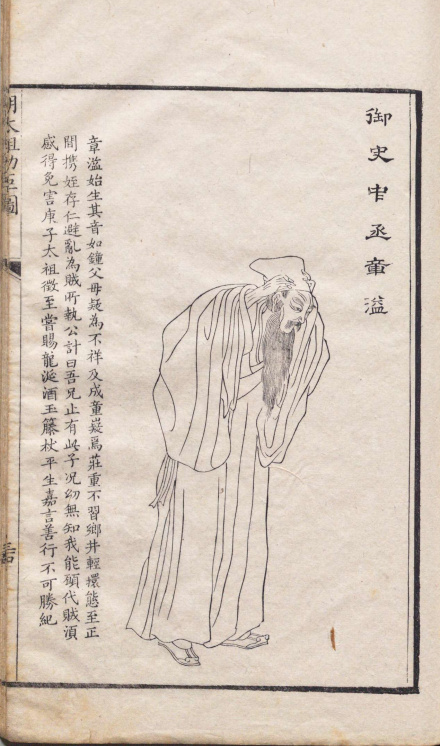 御史中丞章溢
章溢始生其音如鐘父母疑為不祥及成童嶷焉莊重不習鄉井輕擐態至正
間携姪存仁避亂為賊所執公計曰吾兄止有此子况幼無知我能願代賊湏
感得免害庚子太祖徵至嘗賜龍涎酒玉籐杖平生嘉言善行不可勝紀
明太祖功臣圖